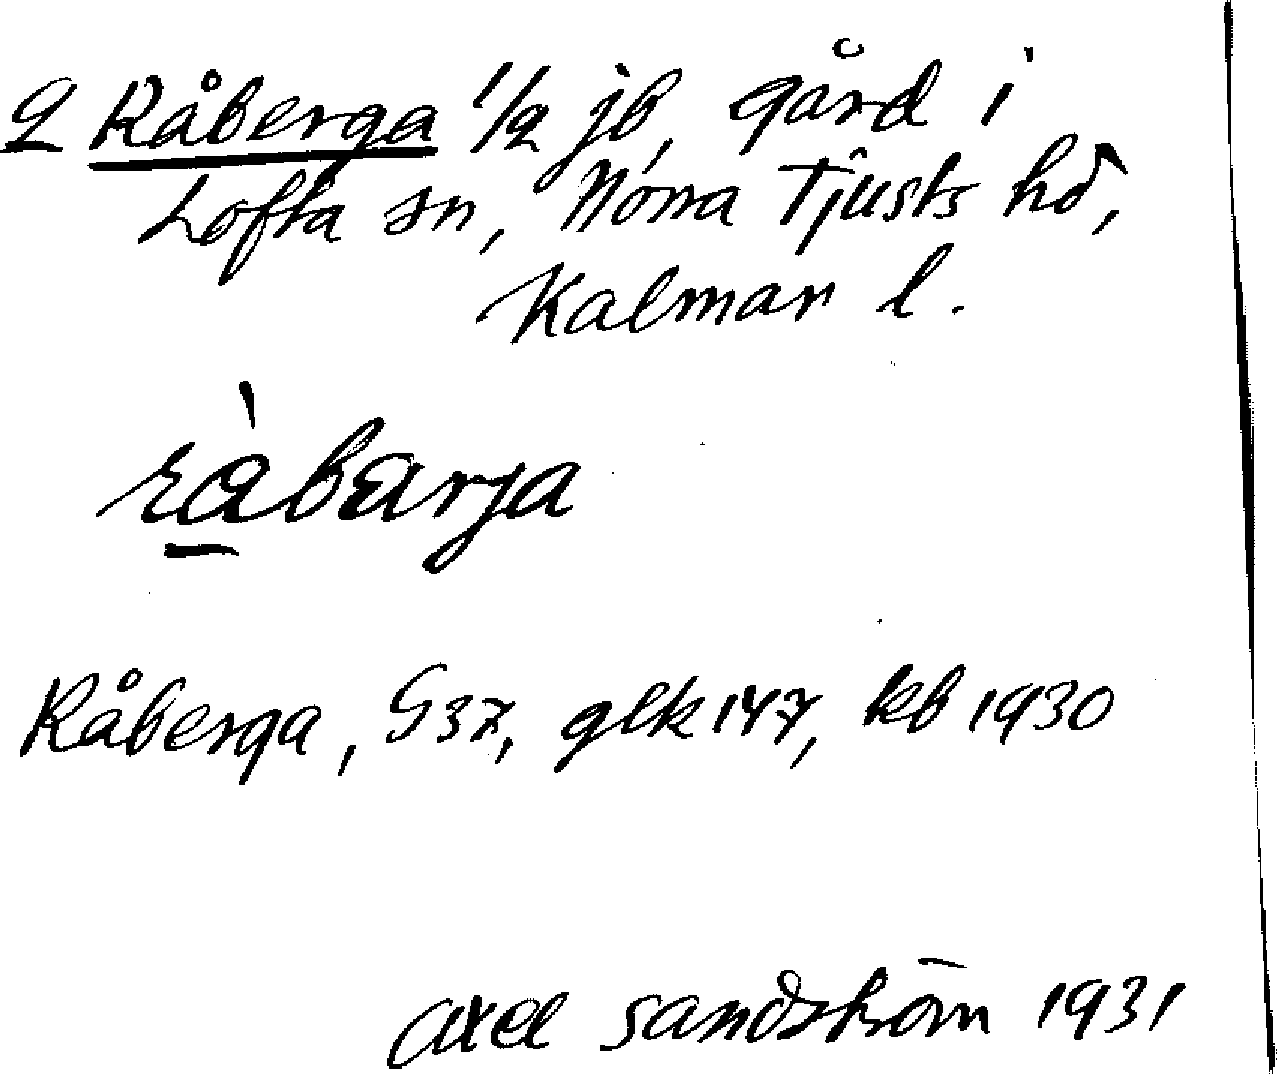 2 Råberga 1/2 jb, gård i
Lofta sn, Norra Tjusts hd,
Kalmar l.
ràbarja
Råberga, G37, glk 147, kb 1930
Axel Sandström 1931